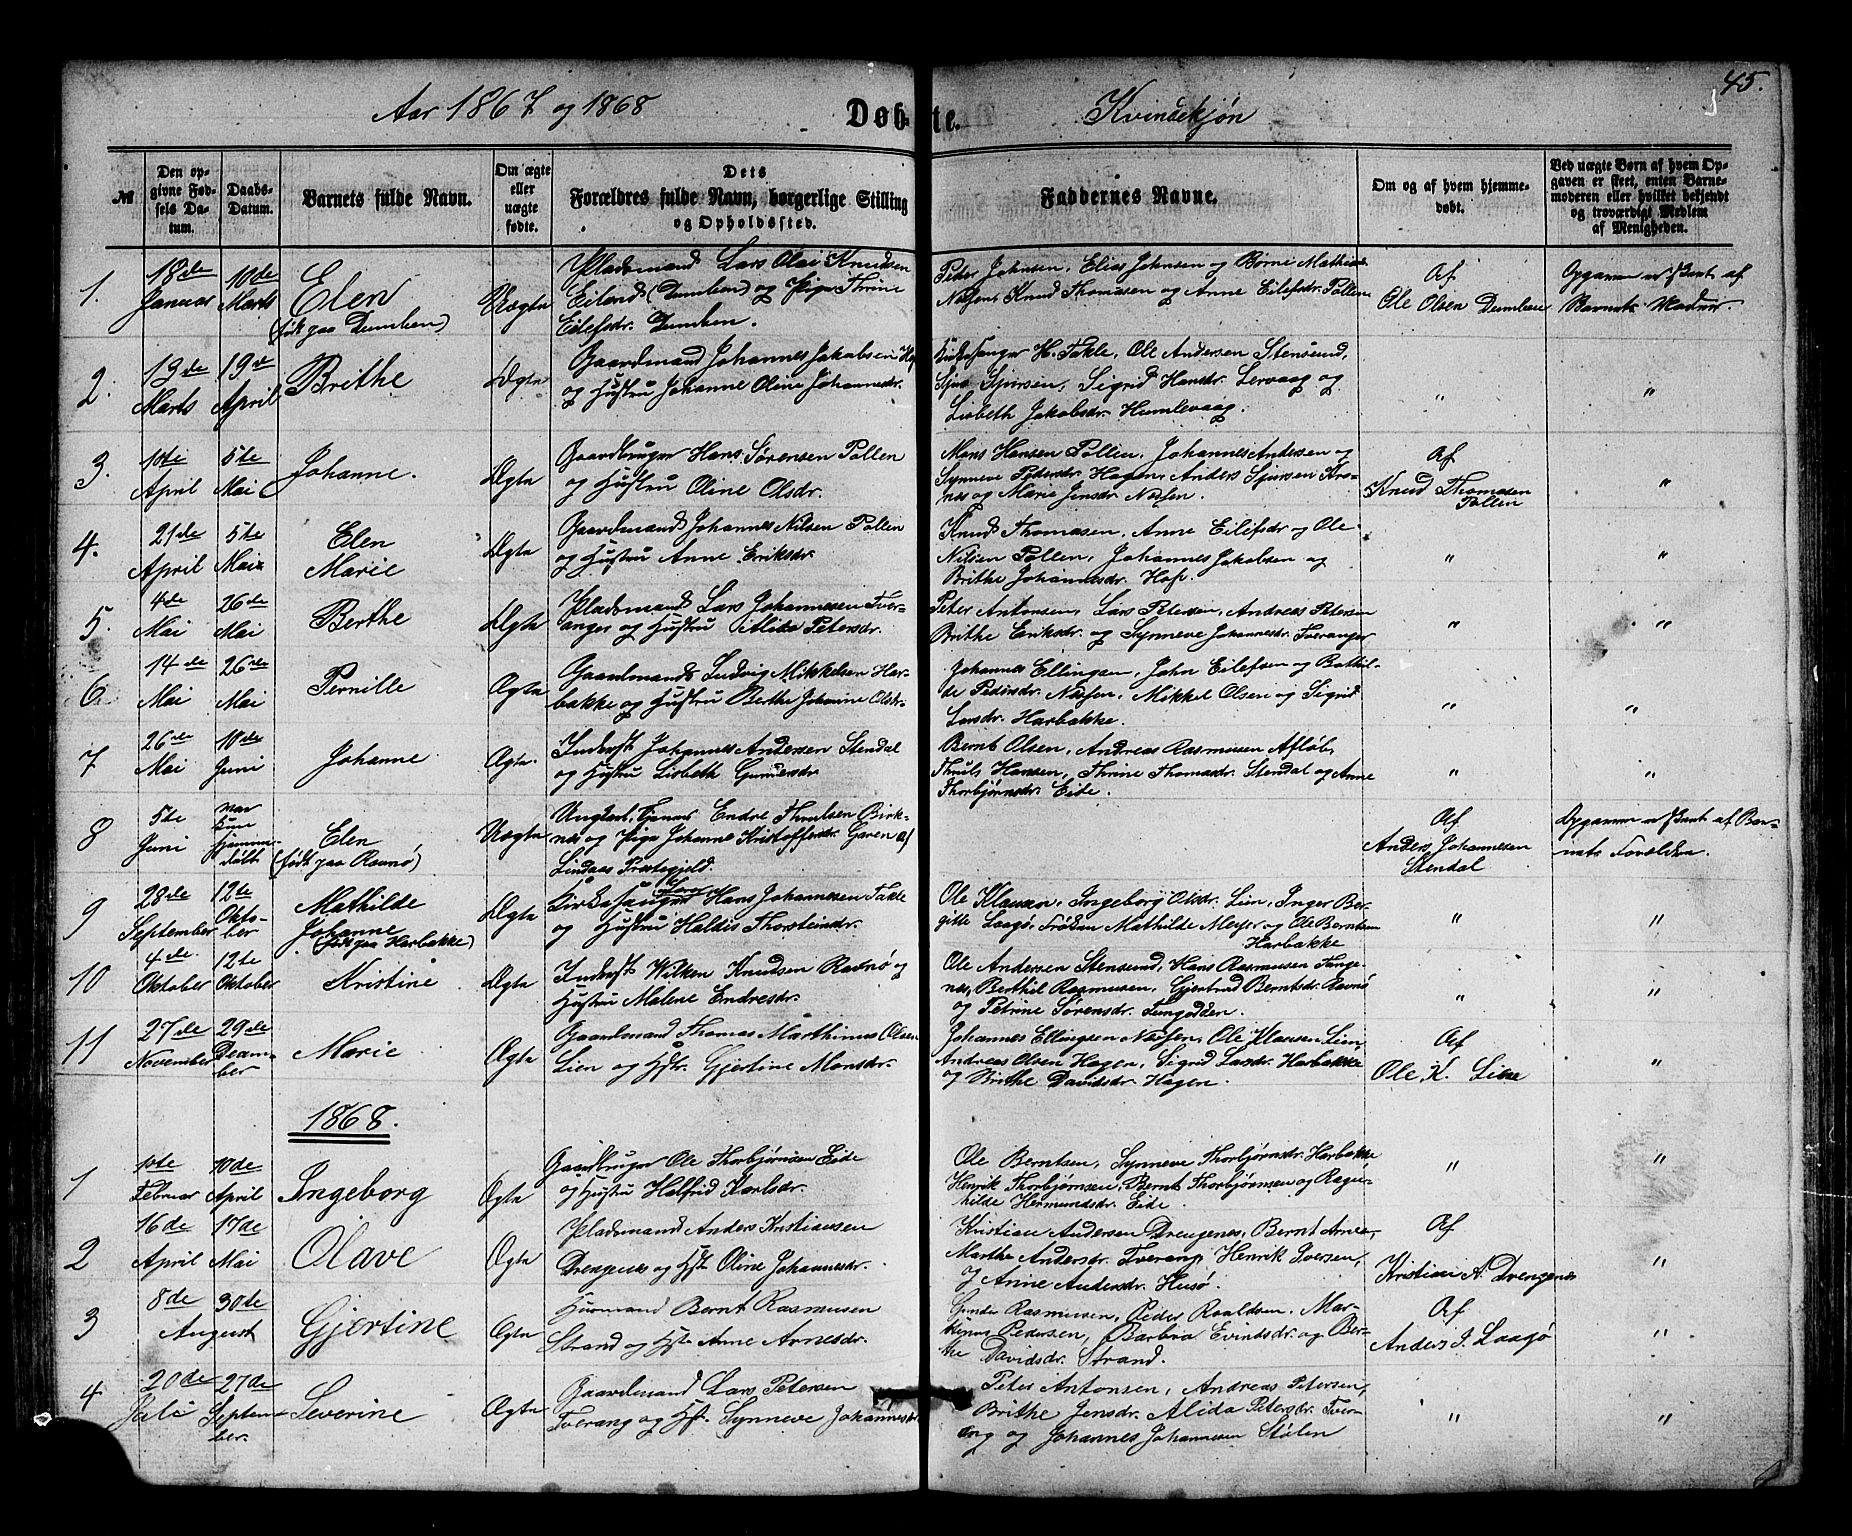 45.
Aar 1867 og 1868 Døbte. Kvindekjøn
№ | Den opgivne Fødsels Datum. | Daabs-Datum. | Barnets fulde Navn. | Om ægte eller uægte fødte. | Dets Forældres fulde Navn, borgerlige Stilling og Opholdssted. | Faddernes Navne. | Om og af hvem hjemmedøbt. | Ved uægte Børn af hvem Opgaven er skeet, enten Barnemoderen eller hvilket bekjendt og troværdigt Medlem af Menigheden.
1. 18de Januar | 10de Marts | Elen (født paa Dumben) | Uægte
Pladsmand Lars Olai Knudsen
Eilend (Dumben) og Pige Thrine
Eilefsdr. Dumben.
Peter Johnsen, Elias Johnsen og Børne Mathias
Nilsen, Knud Thomasen og Anne Eilefsdr. Pollen
Af
Ole Olsen Dumben
Opgaven er skeet af
Barnets Moder.
2. 13de Marts | 19de April | Brithe | Ægte
Gaardmand Johannes Jakobsen Hop
og Hustru Johanne Oline Johannesdr.
Kirkesanger H. Takle, Ole Andersen Stensund,
Sjur Sjursen, Sigrid Hansdr. Lervaag og
Lisbeth Jakobsdr. Humlevaag.
" "
3. 10de April | 5te Mai | Johanne. | Ægte
Gaardbruger Hans Sørensen Pollen
og Hustru Oline Olsdr.
Mons Hansen Pollen, Johannes Andersen og
Synneve Pedersdr. Hagen, Anders Sjursen
og Marie Jensdr.
Af
Knud Thomasen
Pollen
"
4. 21de April | 5te Mai | Elen Marie | Ægte
Gaardmand Johannes Nilsen Pollen
og Hustru Anne Eriksdr.
Knud Thomasen, Anne Eilefsdr og Ole
Nilsen Pollen, Johannes Jakobsen og
Brithe Johannesdr. Hop.
" "
5. 4de Mai | 26de Mai | Berthe | Ægte
Pladsmand Lars Johannesen Tver-
anger og Hustru Alida Petersdr.
Peter Antonsen, Lars Petersen, Andreas Petersen
Brithe Eriksdr. og Synneve Johannesdr. Tveranger
" "
6. 14de Mai | 26de Mai | Pernille | Ægte
Gaardmand Ludvig Mikkelsen Har-
bakke og Hustru Berthe Johanne Olsdr.
Johannes Ellingsen, John Eilefsen og Bothil-
de Pedersdr. Nessen, Mikkel Olsen og Sigrid
Larsdr. Harbakke.
" "
7 26de Mai | 10de Juni | Johanne | Ægte.
Inderst Johannes Andersen Stendal
og Hustru Lisbeth Gundersdr
Bernt Olsen, Andreas Rasmusen Afløb,
Thuls Hansen, Thrine Thomasdr. Stendal og Anne
Thorbjørnsdr. Eide.
" "
8 5te Juni | var kun hjemme-døbt | Elen (født paa Ravnø) | Uægte
Ungkarl, Tjener Endre Thrulsen Birk-
nes og Pige Johanne Kristoffersdr. Garen af
Lindaas Prestegjeld.
Af
Anders Johannesen
Stendal
Opgaven er skeet af Bar-
nets Forældre.
9 28de September | 12te Oktober | Mathilde Johanne (født paa Harbakke) | Ægte
Kirkesanger Hans Johannesen Takle
og Hustru Haldis Thorsteinsdr.
Ole Klausen, Ingeborg Olsdr. Lien, Inger Ber-
gitte Laagø, Frøken Mathilde Meyer og Ole Berntsen
Harbakke
" "
10 4de Oktober | 12te Oktober | Kristine | Ægte
Inderst Wilken Knudsen Ravnø og
Hustru Malene Endresdr.
Ole Andersen Stensund, Hans Rasmusen Tange-
nes, Berthil Rasmusen, Gjertrud Berntsdr. Ravnø
og Petrine Sørensdr. Tungodden.
" "
11 27de November | 29de Decem-ber | Marie | Ægte
Gaardmand Thomas Marthinus Olsen
Lien og Hstr. Gjertine Monsdr.
Johannes Ellingsen Nessen, Ole Klausen Lien,
Andreas Olsen Hagen, Sigrid Larsdr. Harbakke
og Brithe Davidsdr. Hagen.
Af
Ole K. Lien
"
1868.
1 10de Februar | 10de April | Ingeborg | Ægte
Gaardbruger Ole Thorbjørnsen Eide
og Hustru Halfrid Karlsdr.
Ole Berntsen, Synneve Thorbjørnsdr. Harbakke
Henrik Thorbjørnsen, Bernt Thorbjørnsen og Ragn-
hilde Hermundsdr. Eide.
" "
2 16de April | 17de Mai | Olave | Ægte
Pladsmand Anders Kristiansen
Drengenes og Hst. Oline Johannesdr.
Kristian Andersen Drengenes, Bernt Arnes,
Marthe Andersdr. Tverang, Henrik Iversen,
og Anne Andersdr. Husø.
Af
Kristian A. Drengenes
"
3 8de | 30de August | Gjertine | Ægte
Husmand Bernt Rasmusen
Strand og Hst. Anne Arnesdr.
Gunder Rasmusen, Peder Roaldsen, Mar-
thinus Pedersen, Barbro Evindsdr. og Ber-
the Davidsdr. Strand.
Af
Anders J. Laagø
"
4 20de Juli | 27de Septem-ber. | Severine | Ægte
Gaardmand Lars Petersen
Tverang og Hst. Synneve Johannesdr.
Peter Antonsen, Andreas Petersen,
Brithe Jensdr. Alida Petersdr. Tver-
ang og Johannes Johannesen Stølen
" "